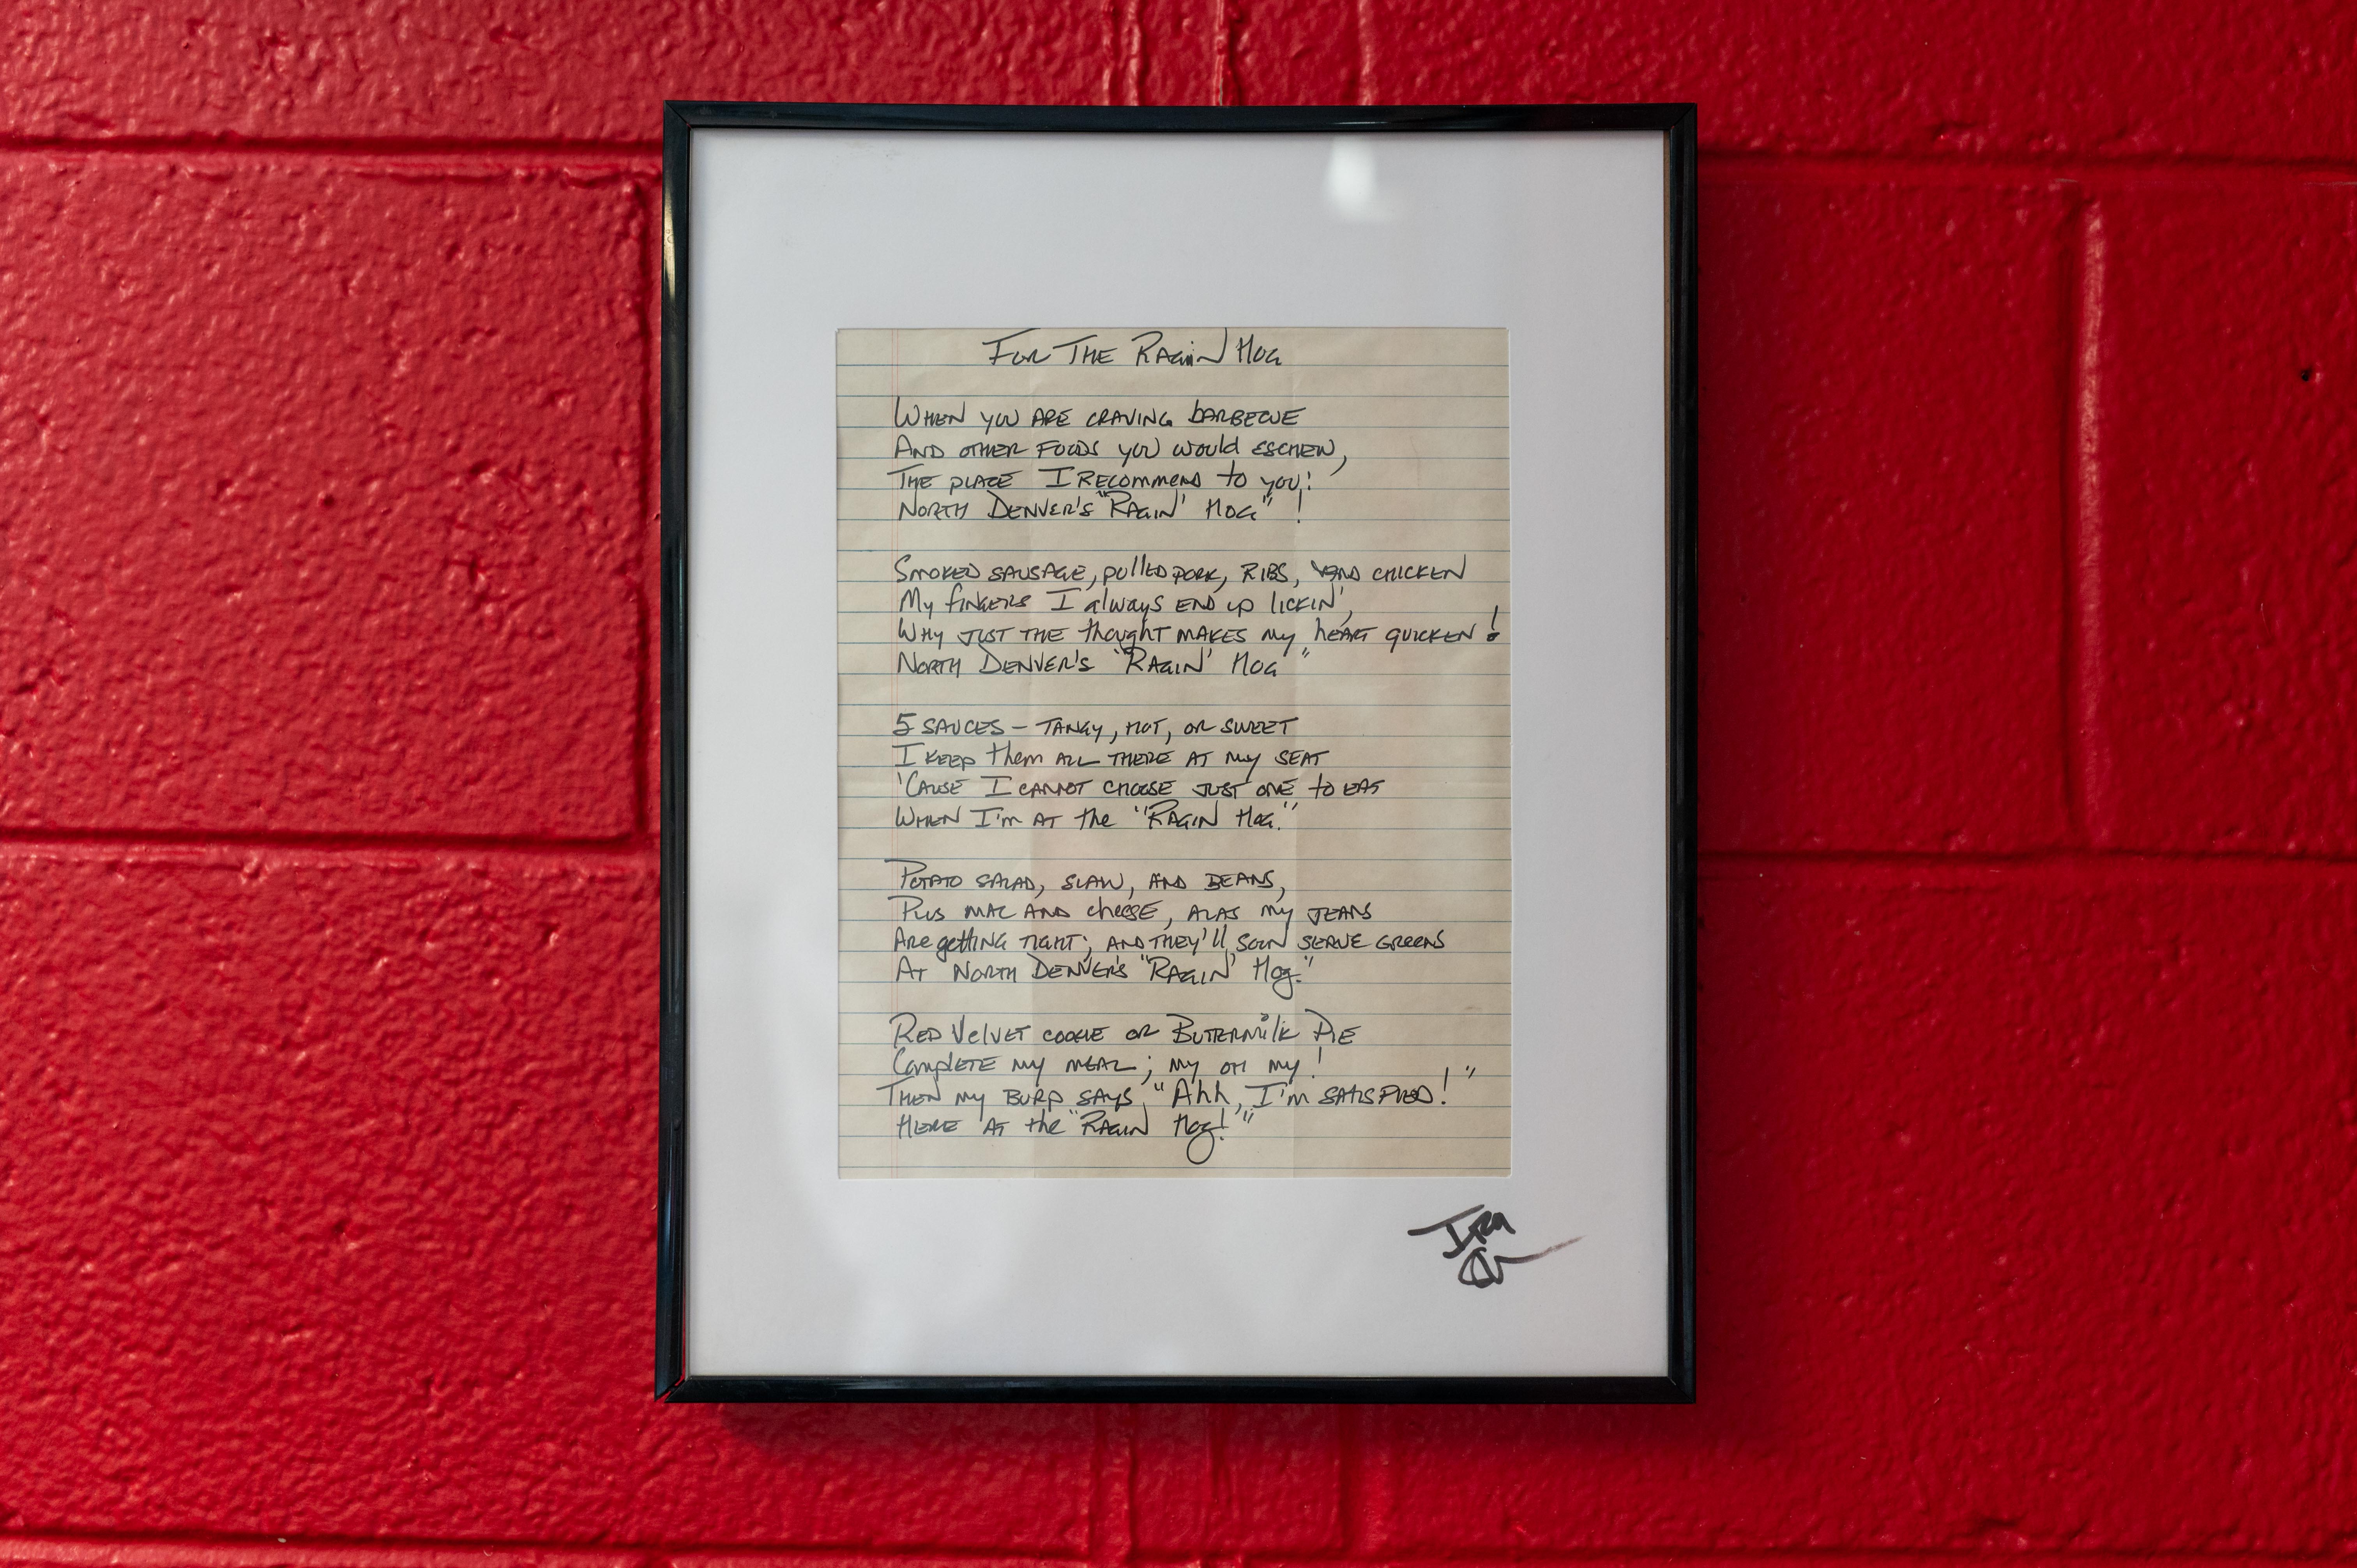 For The Ragin Hog
When you are craving barbecue
And other foods you would eschew,
The place I recommend to you:
North Denver's "Ragin' Hog"!
Smoked sausage, pulled pork, ribs, and chicken
My fingers I always end up lickin',
Why just the thought makes my heart quicken!
North Denver's "Ragin' Hog"
5 sauces - tangy, hot, or sweet
I keep them all there at my seat
'Cause I cannot choose just one to eat
When I'm at the "Ragin Hog."
Potato salad, slaw, and beans,
Plus mac and cheese, alas my jeans
Are getting tight; and they'll soon serve greens
At North Denver's "Ragin' Hog."
Red Velvet cookie or Buttermilk Pie
Complete my meal; my oh my!
Then my burp says, "Ahh, I'm satisfied!"
Here at the "Ragin Hog!"
Ira